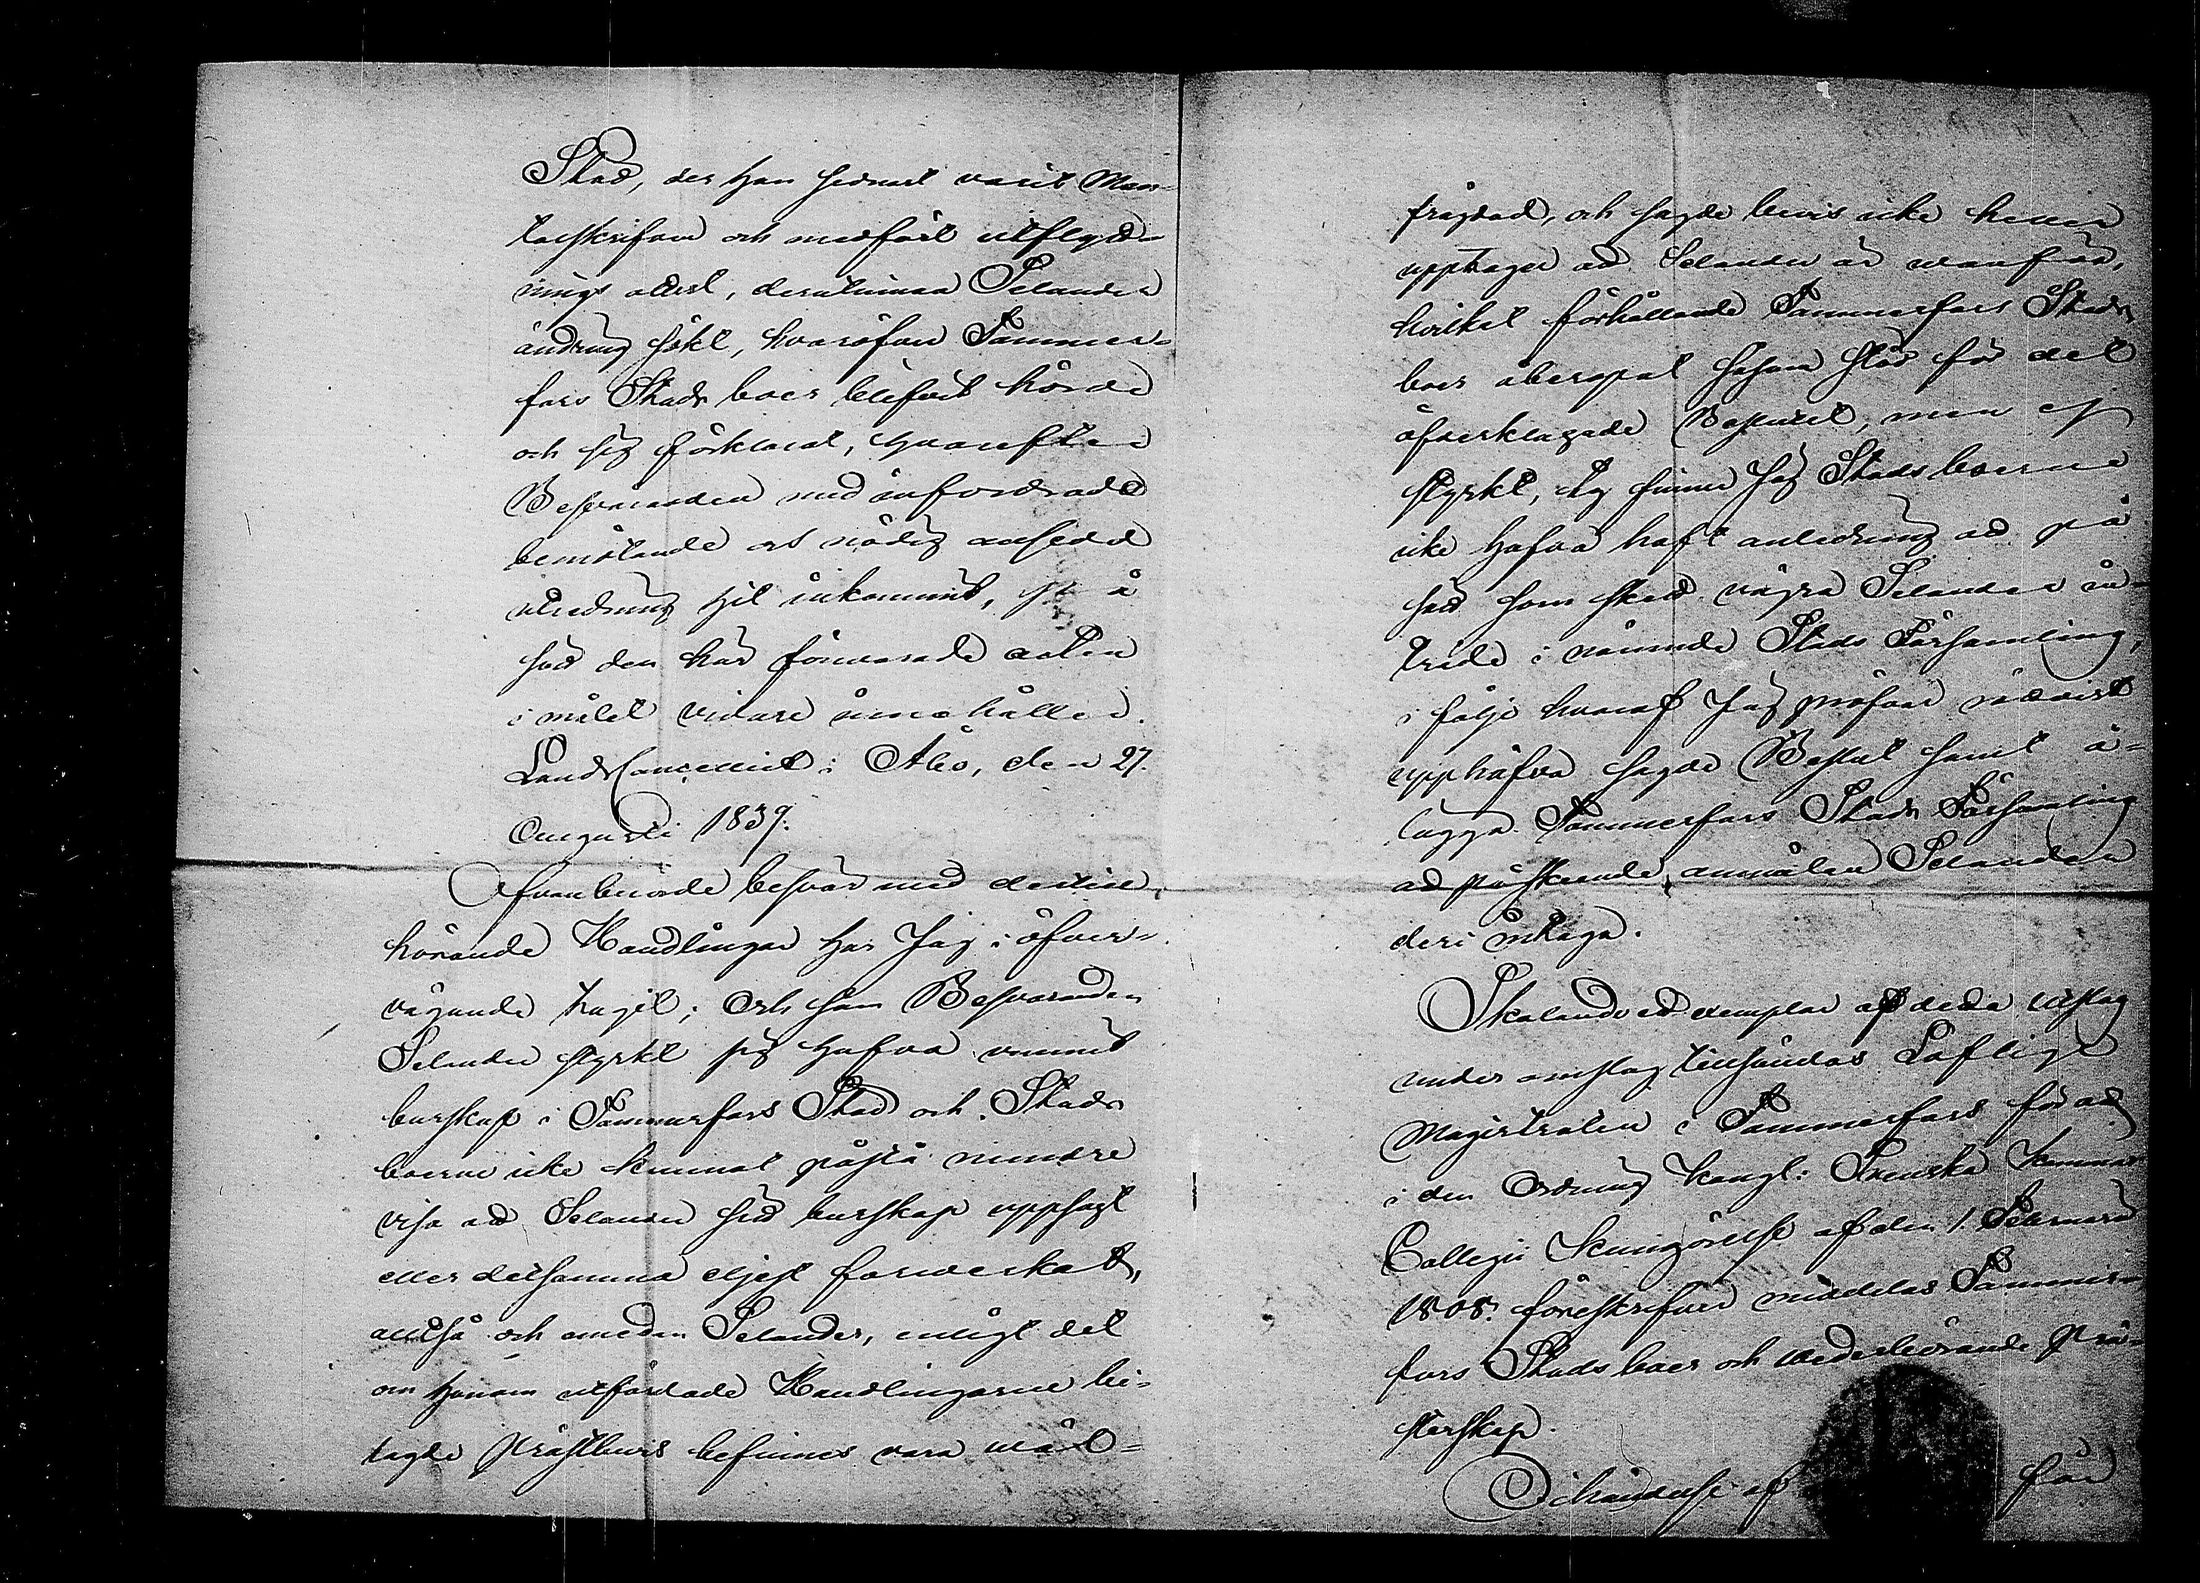 Stad, der Han sednast varit Man-
talskrifven och medfört utflytt-
nings attest, deruti�innan Selander
ändring sökt, hvaröfver Tammer-
fors Stads boer blifvit hörde
och sig förklarat, hvarefter
Besväranden med infordrade
bemötande och nödig ansedd
utredning till inkommit, på
sätt den här förvarade acten
i målet vidare innehåller.
Lands Cancelliet i Åbo, den 27.
Augusti 1839.
Ofvanberörde besvär med dertill
hörande Handlingar har Jag i öfver-
vägande tagit; Och som Besväranden
Selander styrkt sig hafva vunnit
burskap i Tammerfors Stad och Stads
boerne icke kunnat påstå mindre
visa att Selander sitt burskap uppsagt
eller detsamma eljest förverkat,
alltså och emedan Selander, enligt det
om honom utfärdade Handlingarne bi-
lagde Prästbevis befinnes vara väl-
frägdad, och sagde bevis icke heller
upptager att Selander är vanför,
hvilket förhållande Tammerfors Stads
boer åberopat såsom stöd för det
öfverklagade Beslutet, men ej
styrkt, Ty finner Jag Stadsboerne
icke hafva haft anledning att på
sätt som skedd vägra Selander in-
träde i nämnde Stads Församling,
i följe hvaraf Jag pröfvar rättvist
upphäfva sagde Beslut samt å-
lägga Tammerfors Stads Församling
att påskeende anmälan Selander
deri intaga.
Skolande ett exemplar af detta utslag
under omslag tillsändas Lofliga
Magistraten i Tammerfors för att
i den Ordning Kongl: Svenska Kammar
Collegii Kungörelse af den 1 Februarii
1808. föreskrifver meddelas Tammer-
fors Stads boer och vederbörande Prä-
sterskap.
Och händelse af för